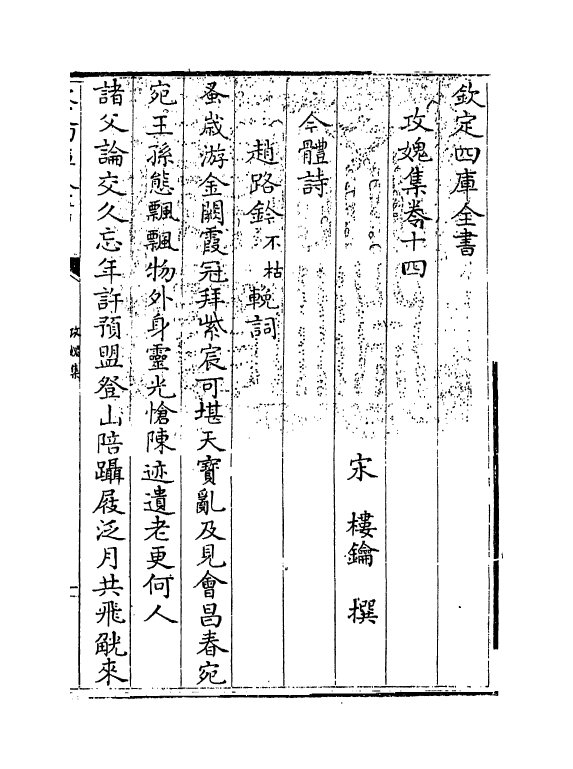 欽定四庫全書
攻媿集卷十四
宋 樓鑰 撰
今體詩
趙路鈐不枯輓詞
蚤歲游金闕霞冠拜紫宸可堪天寶亂及見會昌春宛
宛王孫態飄飄物外身靈光愴陳迹遺老更何人
諸父論交久忘年許預盟登山陪躡屐泛月共飛觥來
攻媿集